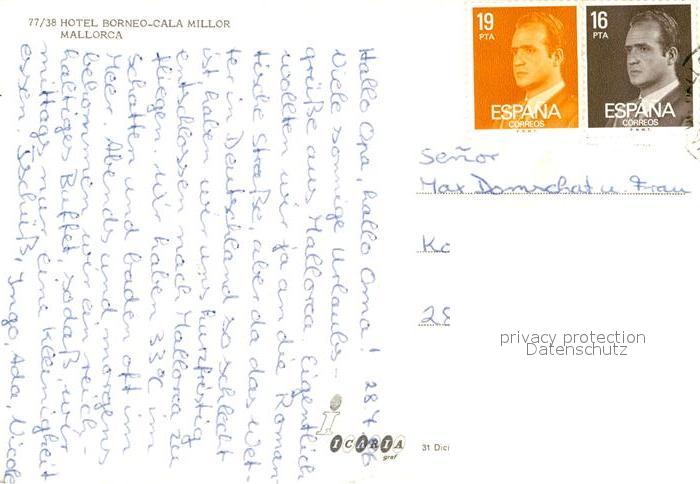 77/38 HOTEL BORNEO-CALA MILLOR
MALLORCA
Hallo Opa, hallo Oma! 28.7.86
Viele sonnige Urlaubs-
grüße aus Mallorca. Eigentlich
wollten wir ja an die Roman-
tische Straße, aber da das Wet-
ter in Deutschland so schlecht
ist haben wir uns kurzfristig
entschlossen nach Mallorca zu
fliegen. Wir haben 33°C im
Schatten und baden oft im
Meer. Abends und morgens
bekommen wir ein reich-
haltiges Buffet, sodaß wir
mittags nur eine Kleinigkeit
essen. Tschüß, Ingo, Ada, Nicole
19
PTA
ESPAÑA
CORREOS
F.N.M.T.
16
PTA
ESPAÑA
CORREOS
F.N.M.T.
Señor
Max Domschat u. Frau
Ka
28
privacy protection
Datenschutz
ICARIA
graf
31 Dici